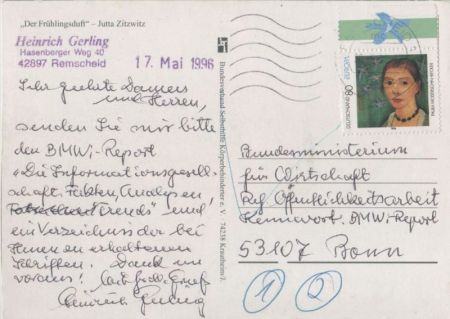 „Der Frühlingsduft“ – Jutta Zitzwitz
Heinrich Gerling
Hasenberger Weg 40
42897 Remscheid
17. Mai 1996
Sehr geehrte Damen
und Herren,
senden Sie mir bitte
den BMWi-Report
"Die Informationsgesell-
schaft, Fakten, Analysen,
Trends" und
ein Verzeichnis der bei
Ihnen erhaltenen
Schriften. Dank im
voraus! Mit frdl. Gruß
Heinrich Gerling
Bundesverband Selbsthilfe Körperbehinderter e. V. · 74238 Krautheim/J.
80
DEUTSCHLAND
Bundesministerium
für Wirtschaft
Öffentlichkeitsarbeit
Kennwort: BMWi-Report
53107 Bonn
1 2